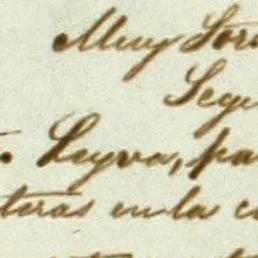 Muy Sor
Segu
. Leyva, pa
teras en la c